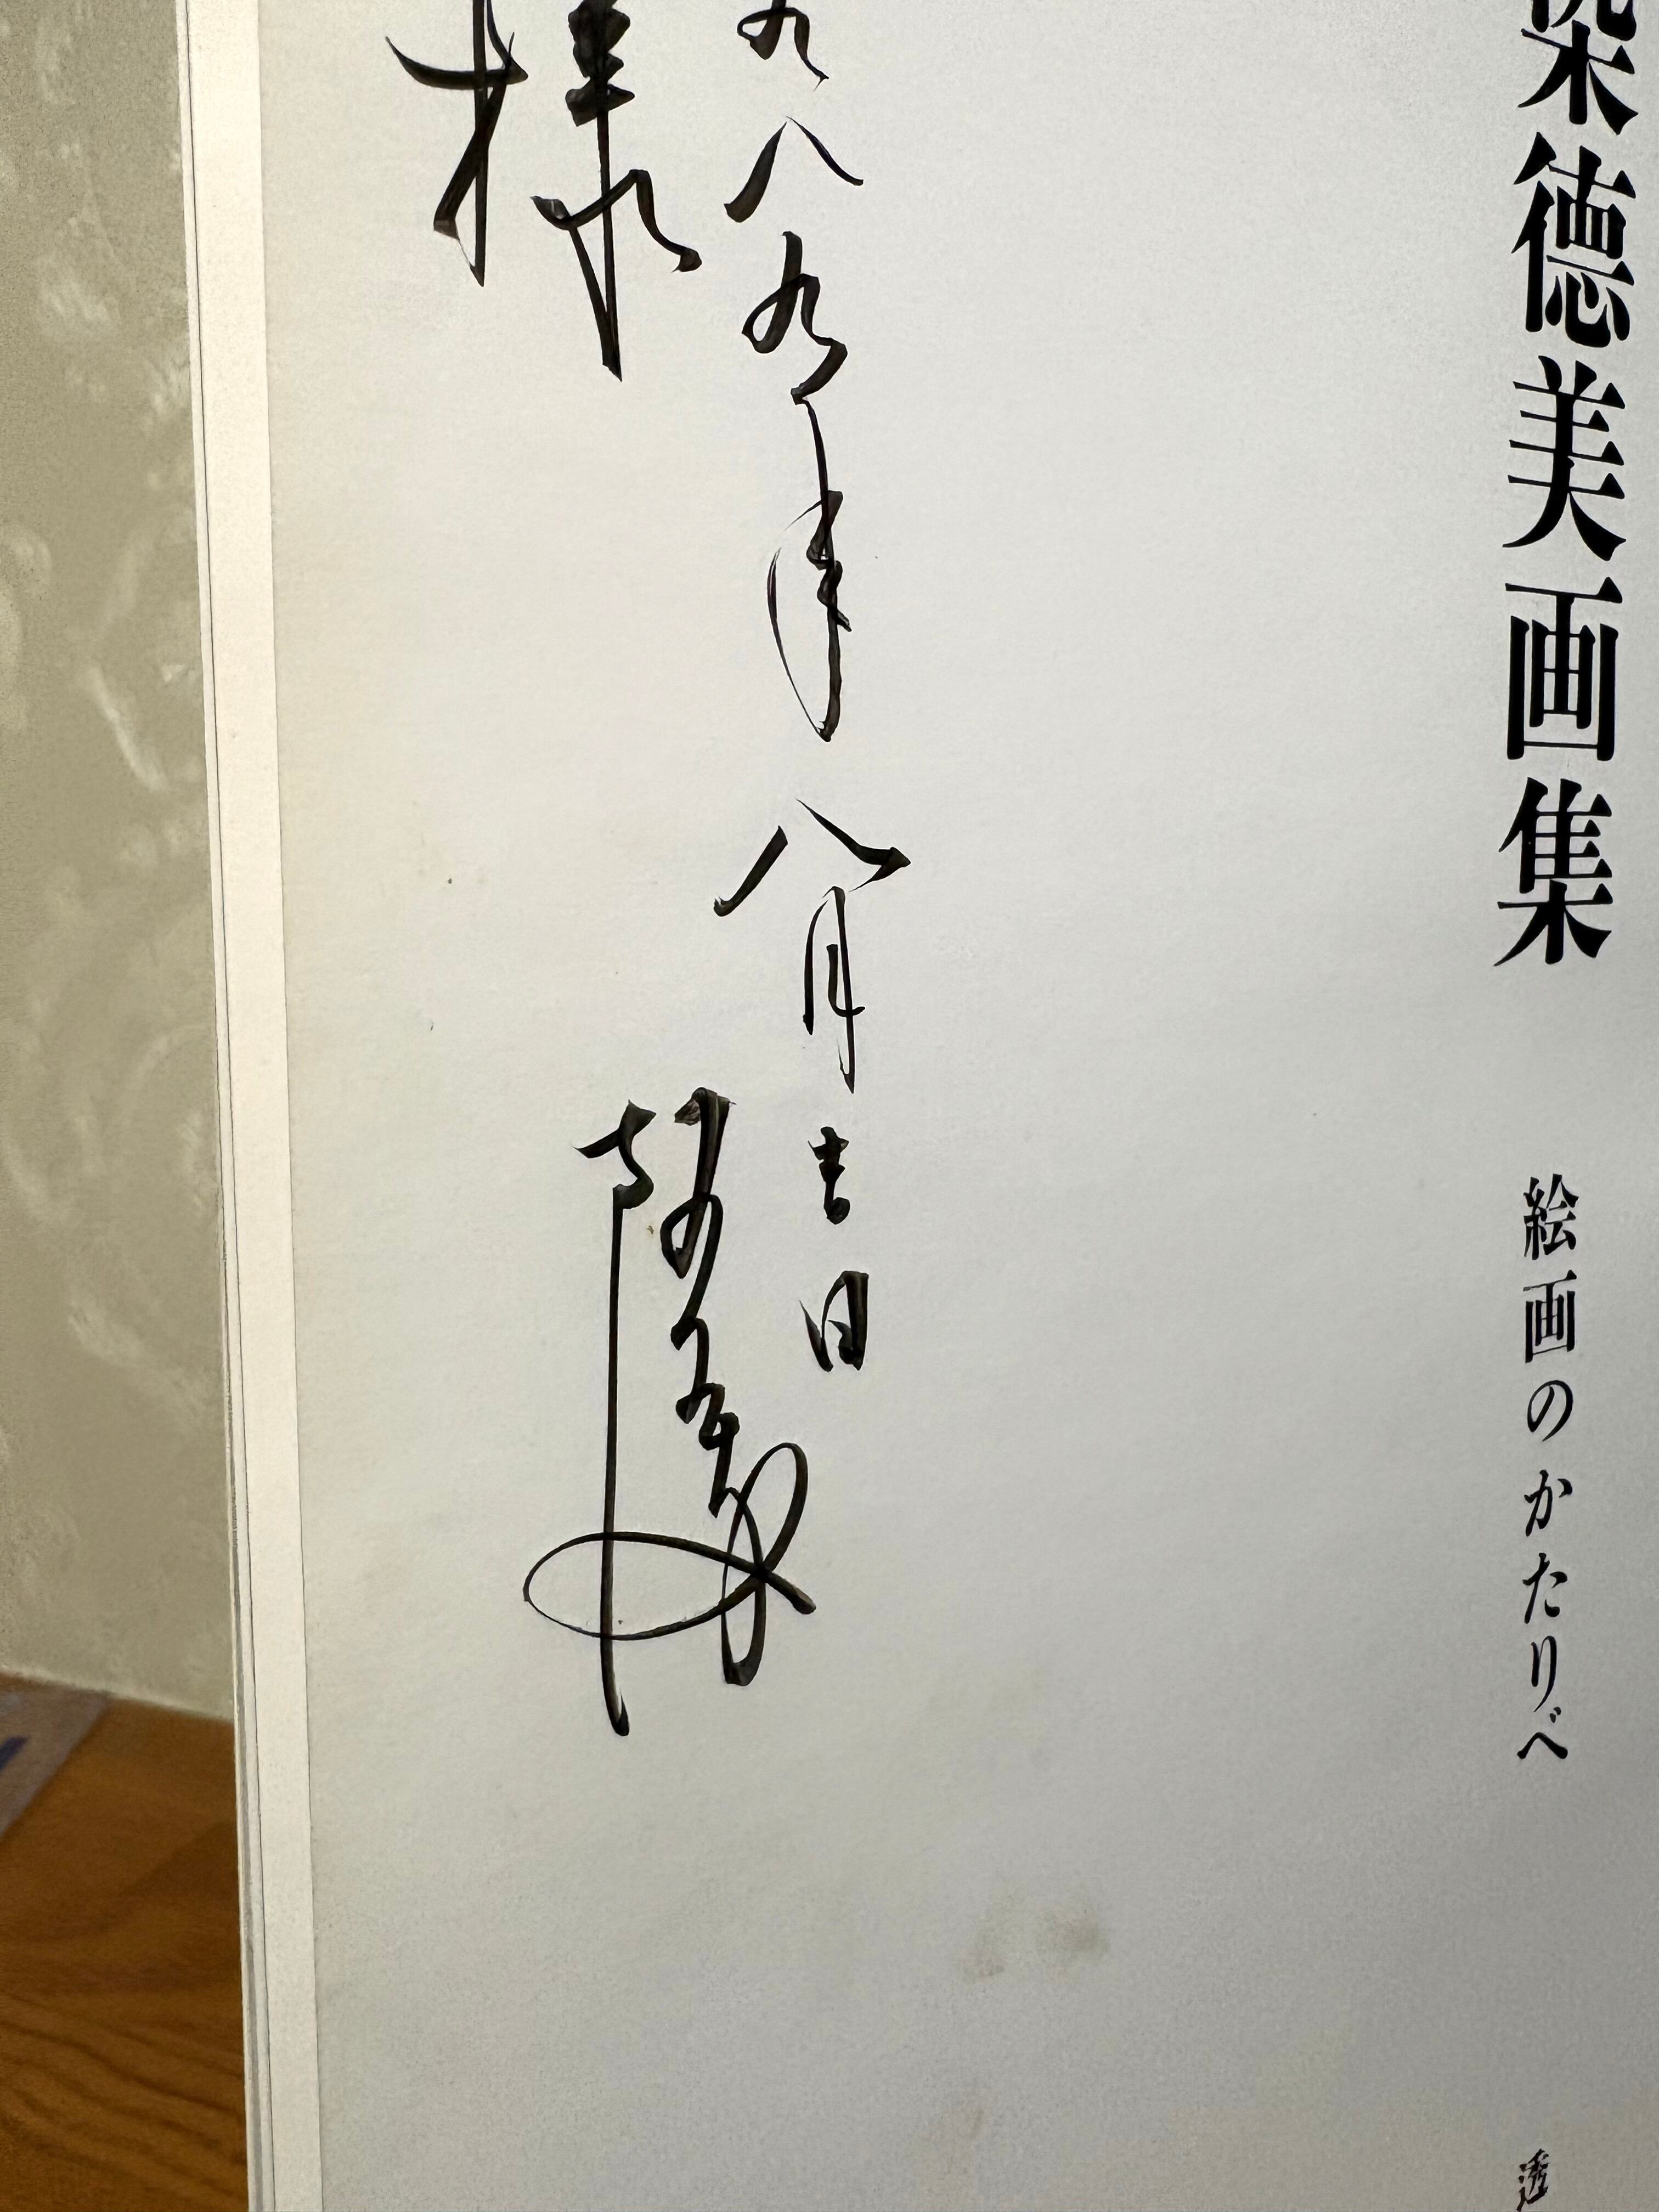 染德美画集 絵画のかたりべ 透
九八九年八月吉日
様